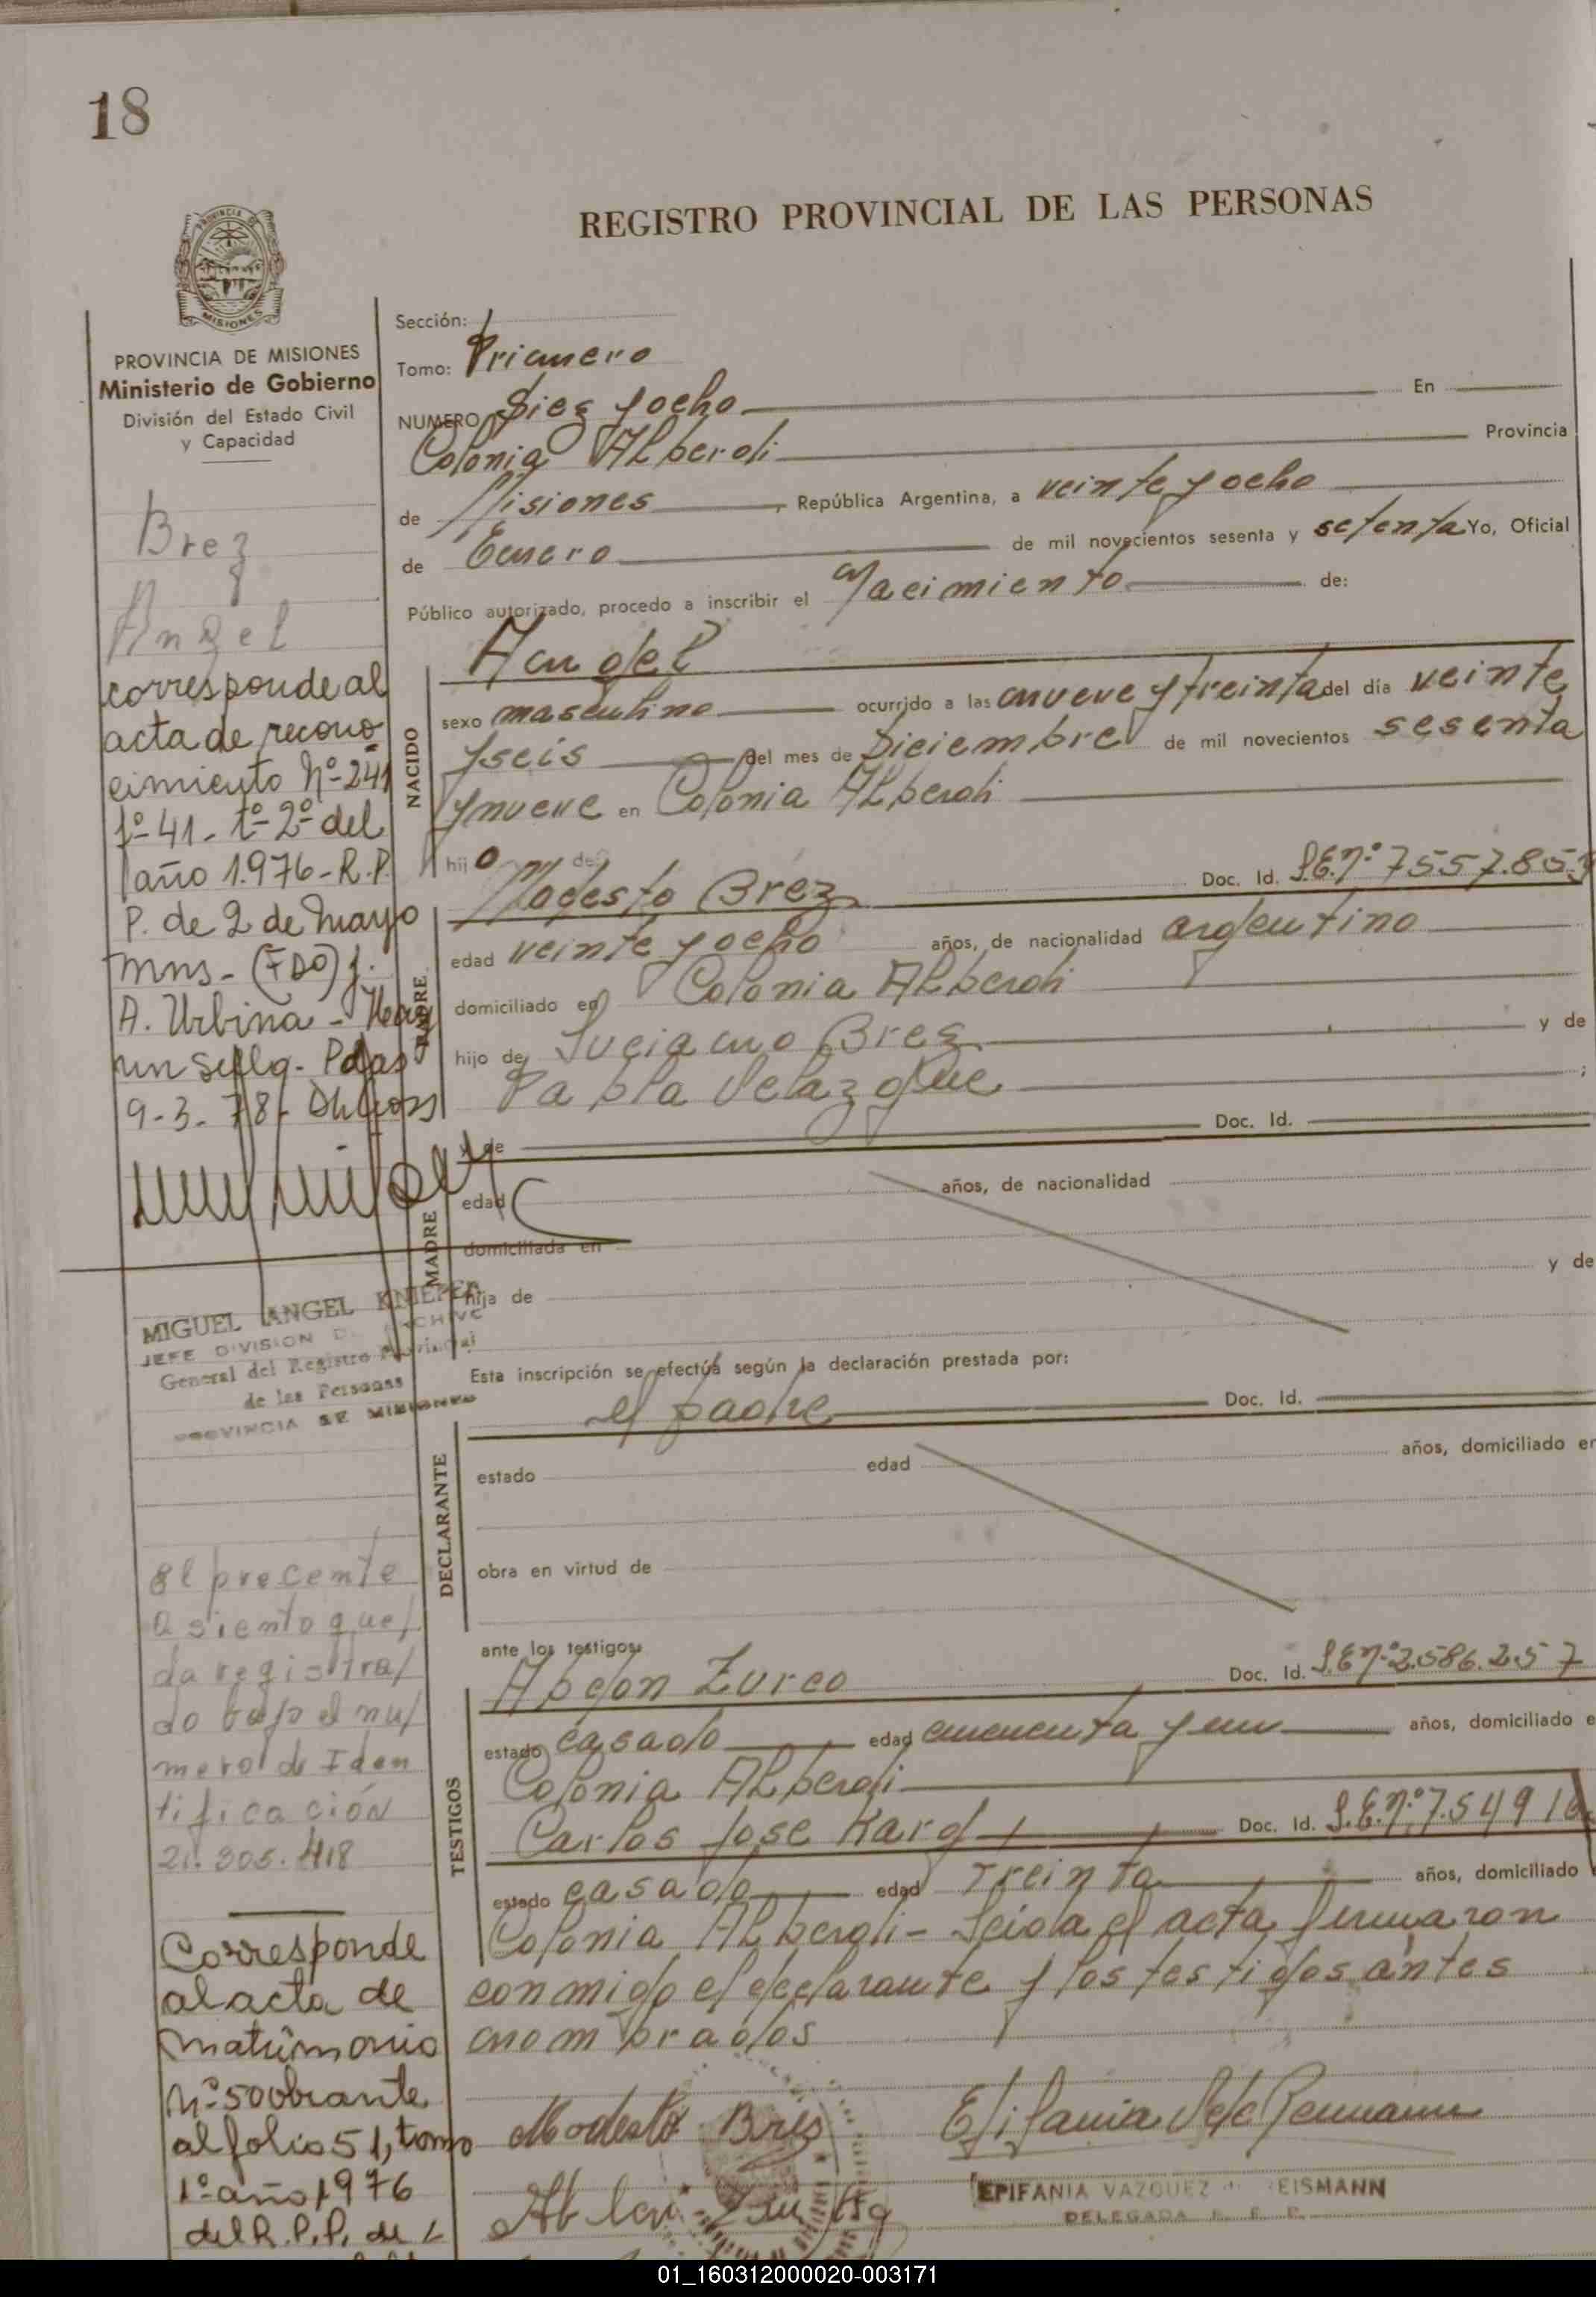 18
REGISTRO PROVINCIAL DE LAS PERSONAS
PROVINCIA DE MISIONES
MISIONES
PROVINCIA DE MISIONES
Ministerio de Gobierno
División del Estado Civil
y Capacidad
Brez
Angel
corresponde al
acta de recono
cimiento Nº 241
fº 41 - tº 2º del
año 1.976 - R.P.
P. de 2 de Mayo
Mns - (FDO) J.
A. Urbina -
9-3-78-
MIGUEL ANGEL KNIEPER
JEFE DIVISION DE ARCHIVO
General del Registro Provincial
de las Personas
PROVINCIA DE MISIONES
El precente
asiento que/
da registra/
do bajo el nu/
mero de Iden
tificación
21.305.418
Corresponde
al acta de
matrimonio
Nº 50 obrante
al folio 51, tomo
1º año 1976
del R.P.P. de
Sección:
Tomo: Primero
NUMERO Diez y ocho En
Colonia Alberdi Provincia
de Misiones, República Argentina, a veinte y ocho
de Enero de mil novecientos sesenta y setenta Yo, Oficial
Público autorizado, procedo a inscribir el Nacimiento de:
NACIDO
Angel
sexo masculino ocurrido a las nueve y treinta del día veinte
y seis del mes de Diciembre de mil novecientos sesenta
y nueve en Colonia Alberdi
hijo de
Modesto Brez Doc. Id. L.E.Nº 7557.853
PADRE
edad veinte y ocho años, de nacionalidad argentino
domiciliado en Colonia Alberdi
hijo de Luciano Brez y de
Pabla Velazque ;
y de Doc. Id.
MADRE
edad años, de nacionalidad
domiciliada en
hija de y de
Esta inscripción se efectúa según la declaración prestada por:
el padre Doc. Id.
DECLARANTE
estado edad años, domiciliado en
obra en virtud de
ante los testigos
Abdon Zurco Doc. Id. L.E.Nº 2.586.257
TESTIGOS
estado casado edad cincuenta y un años, domiciliado e
Colonia Alberdi
Carlos Jose Kard Doc. Id. L.E.Nº 7.54916
estado casado edad treinta años, domiciliado
Colonia Alberdi - Leida el acta firmaron
conmigo el declarante y los testigos antes
nombrados
Modesto Bres
EPIFANIA VAZQUEZ EISMANN
DELEGADA
01_160312000020-003171